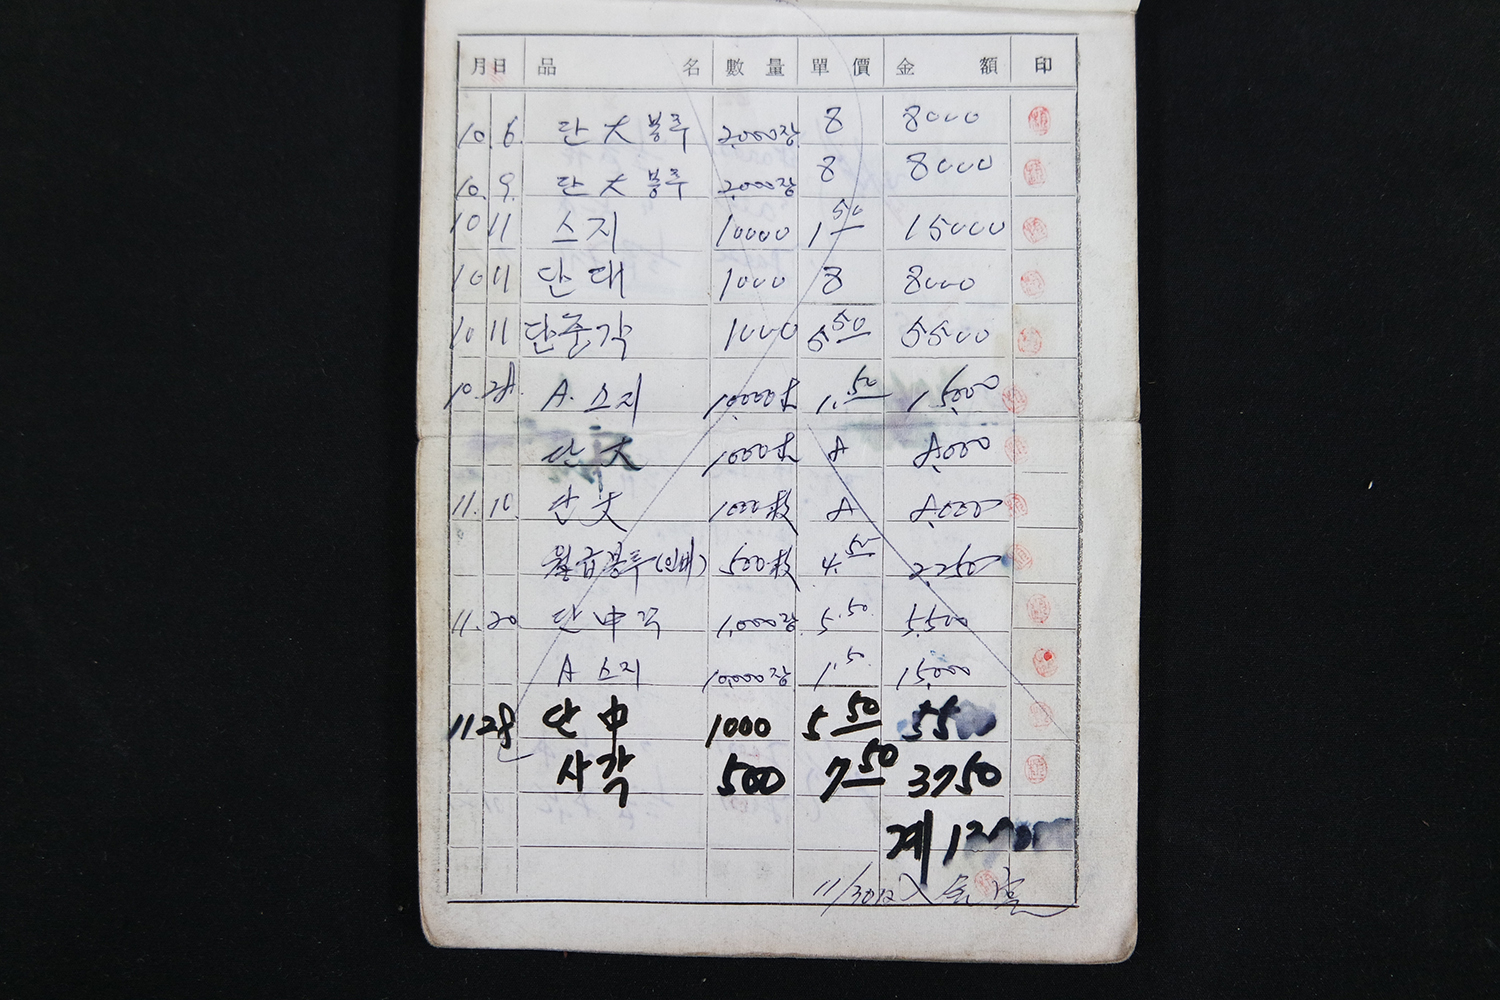 月日 品 名 數量 單價 金 額 印
10 6 단 大 봉투 2,000장 8 8000
10 9. 단 大 봉투 2,000장 8 8000
10 11 스지 10000 1 50 15000
10 11 단대 1000 8 8000
10 11 단중각 1000 5 50 5500
10. 28 A. 스지 10,000才 1. 50 15,000
단 大 1000才 8 8,000
11. 10 단 大 1000枚 8 8,000
월급봉투(인비) 500枚 4. 50 2,250
11. 20 단 中 각 1,000장 5.50 5,500
A 스지 10,000장 1.50 15,000
11 28 단 中 1000 5 50 5500
사각 500 7 50 3750
계
11/30日 入金